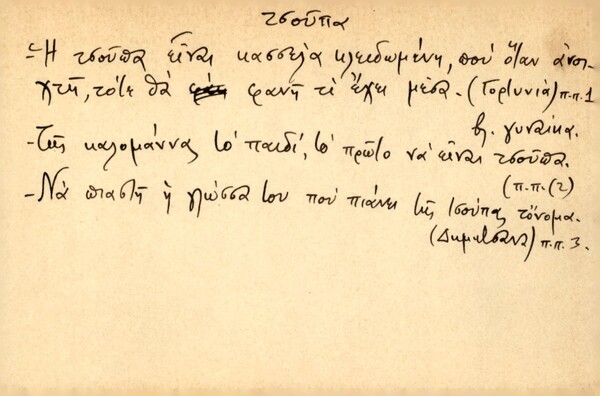 τσοῦπα
- Ἡ τσοῦπα εἶναι κασσέλα κλειδωμένη, ποὺ ὅταν ἀνοι-
χτῆ, τότε θὰ φανῆ τί ἔχει μέσα. (Γορτυνία) π.π. 1
βλ. γυναίκα.
- Τῆς καλομάννας τὸ παιδί, τὸ πρῶτο νὰ εἶναι τσοῦπα.
(π.π. (2)
- Νὰ πιαστῆ ἡ γλῶσσα του ποὺ πιάνει τῆς τσούπας τὄνομα.
(Δημητσάνα) π.π. 3.